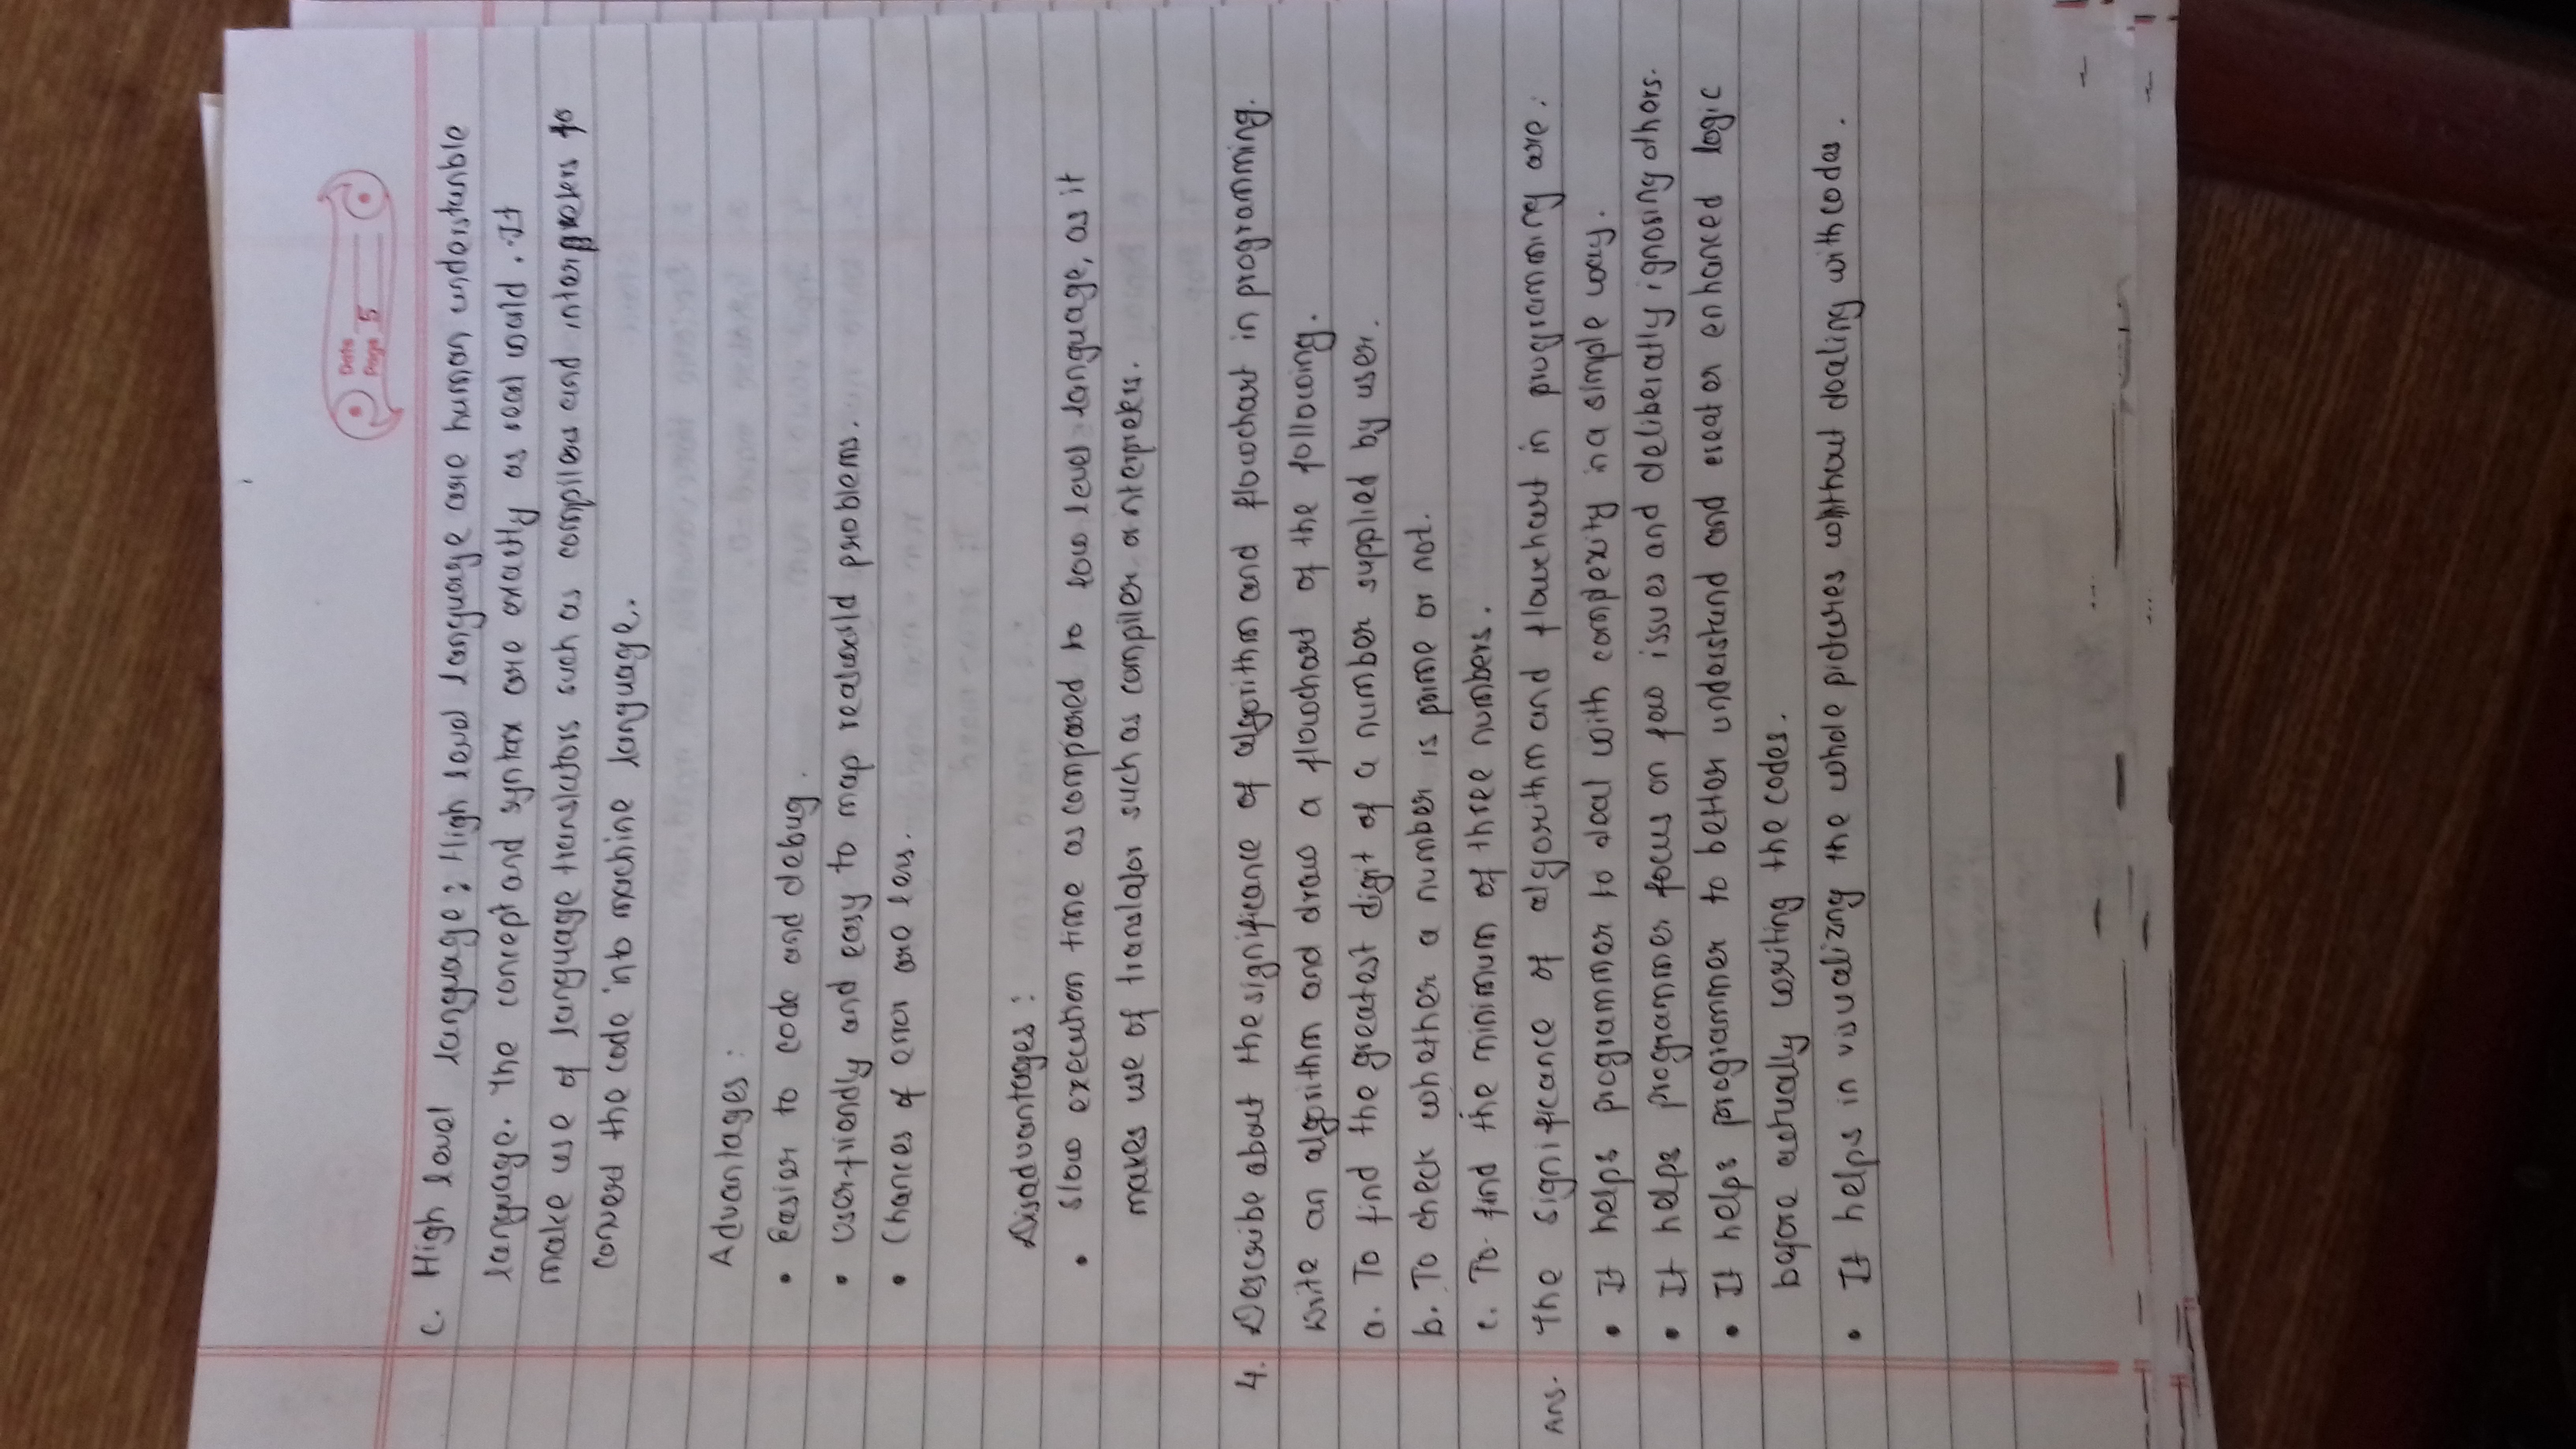 Date
Page 5
c. High level language: High level language are human understanble
language. The concept and syntax are exactly as real world. It
make use of language translators such as compilers and interpreters to
convert the code into machine language.
Advantages:
• Easier to code and debug.
• User-friendly and easy to map realworld problems.
• Chances of error are less.
Disadvantages:
• Slow execution time as compared to low level language, as it
makes use of translator such as compiler or interpreters.
4. Describe about the significance of algorithm and flowchart in programming.
Write an algorithm and draw a flowchart of the following.
a. To find the greatest digit of a number supplied by user.
b. To check whether a number is prime or not.
c. To find the minimum of three numbers.
Ans. The significance of algorithm and flowchart in programming are:
• It helps programmer to deal with compexity in a simple way.
• It helps programmer focus on few issues and deliberatly ignosing others.
• It helps programmer to better understand and creat or enhanced logic
before actually writing the codes.
• It helps in visualizing the whole pictures without dealing with codes.